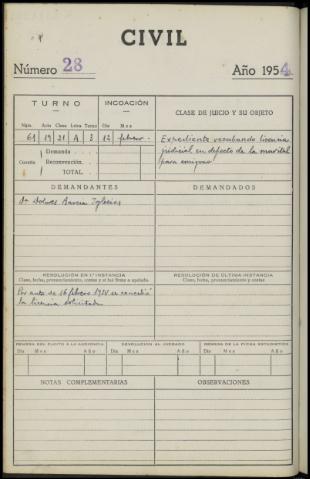 CIVIL
Número 28 Año 1954
TURNO INCOACIÓN CLASE DE JUICIO Y SU OBJETO
Núm. Arts Clase Letra Turno Día Mes
61 19 21 A 3 12 febrero.
Expediente recabando licencia
judicial en defecto de la marital
para emigrar
Cuantía
Demanda
Reconvención
TOTAL
DEMANDANTES DEMANDADOS
Dª Dolores Iglesias
RESOLUCIÓN EN 1ª INSTANCIA RESOLUCIÓN DE ÚLTIMA INSTANCIA
Clase, fecha, pronunciamiento, costas y si fué firme o apelada Clase, fecha, pronunciamiento y costas
Por auto de 16 febrero 1954 se concedió
la licencia solicitada
REMESA DEL PLEITO A LA AUDIENCIA DEVOLUCIÓN AL JUZGADO REMESA DE LA FICHA ESTADÍSTICA
Día Mes Año Día Mes Año Día Mes Año
NOTAS COMPLEMENTARIAS OBSERVACIONES